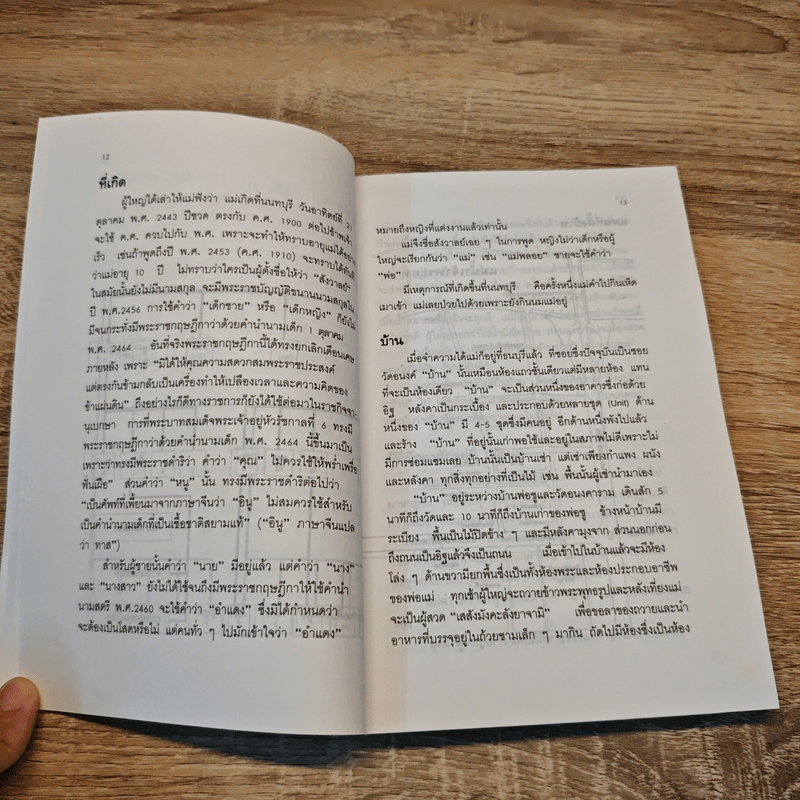 12
ที่เกิด
ผู้ใหญ่ได้เล่าให้แม่ฟังว่า แม่เกิดที่นนทบุรี วันอาทิตย์ที่ 21
ตุลาคม พ.ศ. 2443 ปีชวด ตรงกับ ค.ศ. 1900 ต่อไปข้าพเจ้า
จะใช้ ค.ศ. ควบไปกับ พ.ศ. เพราะจะทำให้ทราบอายุแม่ได้อย่าง
เร็ว เช่นถ้าพูดถึงปี พ.ศ. 2453 (ค.ศ. 1910) จะทราบได้ทันที
ว่าแม่อายุ 10 ปี ไม่ทราบว่าใครเป็นผู้ตั้งชื่อให้ว่า “สังวาลย์”
ในสมัยนั้นยังไม่มีนามสกุล จะมีพระราชบัญญัติขนานนามสกุลใน
ปี พ.ศ.2456 การใช้คำว่า “เด็กชาย” หรือ “เด็กหญิง” ก็ยังไม่
มีจนกระทั่งมีพระราชกฤษฎีกาว่าด้วยคำนำนามเด็ก 1 ตุลาคม
พ.ศ. 2464 อันที่จริงพระราชกฤษฎีกานี้ได้ทรงยกเลิกเดือนเศษ
ภายหลัง เพราะ “มิได้ให้คุณความสดวกสมพระราชประสงค์
แต่ตรงกันข้ามกลับเป็นเครื่องทำให้เปลืองเวลาและความคิดของ
ข้าแผ่นดิน” ถึงอย่างไรก็ดีทางราชการก็ยังได้ใช้ต่อมาในราชกิจจา-
นุเบกษา การที่พระบาทสมเด็จพระเจ้าอยู่หัวรัชกาลที่ 6 ทรงมี
พระราชกฤษฎีกาว่าด้วยคำนำนามเด็ก พ.ศ. 2464 นี้ขึ้นมาเป็น
เพราะว่าทรงมีพระราชดำริว่า คำว่า “คุณ” ไม่ควรใช้ให้พร่ำเพรื่อ
ฟั่นเฝือ” ส่วนคำว่า “หนู” นั้น ทรงมีพระราชดำริต่อไปว่า
“เป็นศัพท์ที่เพี้ยนมาจากภาษาจีนว่า “อินู” ไม่สมควรใช้สำหรับ
เป็นคำนำนามเด็กที่เป็นเชื้อชาติสยามแท้” (“อินู” ภาษาจีนแปล
ว่า ทาส”)
สำหรับผู้ชายนั้นคำว่า “นาย” มีอยู่แล้ว แต่คำว่า “นาง”
และ “นางสาว” ยังไม่ได้ใช้จนถึงมีพระราชกฤษฎีกาให้ใช้คำนำ
นามสตรี พ.ศ.2460 จะใช้คำว่า “อำแดง” ซึ่งมิได้กำหนดว่า
จะต้องเป็นโสดหรือไม่ แต่คนทั่ว ๆ ไปมักเข้าใจว่า “อำแดง”
13
หมายถึงหญิงที่แต่งงานแล้วเท่านั้น
แม่จึงชื่อสังวาลย์เฉย ๆ ในการพูด หญิงไม่ว่าเด็กหรือผู้
ใหญ่จะเรียกกันว่า “แม่” เช่น “แม่พลอย” ชายจะใช้คำว่า
“พ่อ”
มีเหตุการณ์ที่เกิดขึ้นที่นนทบุรี คือครั้งหนึ่งแม่คำไปกินเห็ด
เมาเข้า แม่เลยป่วยไปด้วยเพราะยังกินนมแม่อยู่
บ้าน
เมื่อจำความได้แม่ก็อยู่ที่ธนบุรีแล้ว ที่ซอยซึ่งปัจจุบันเป็นซอย
วัดอนงค์ “บ้าน” นั้นเหมือนห้องแถวชั้นเดียวแต่มีหลายห้อง แทน
ที่จะเป็นห้องเดียว “บ้าน” จะเป็นส่วนหนึ่งของอาคารซึ่งก่อด้วย
อิฐ หลังคาเป็นกระเบื้อง และประกอบด้วยหลายชุด (Unit) ด้าน
หนึ่งของ “บ้าน” มี 4-5 ชุดซึ่งมีคนอยู่ อีกด้านหนึ่งพังไปแล้ว
และร้าง “บ้าน” ที่อยู่นั้นเก่าพอใช้และอยู่ในสภาพไม่ดีเพราะไม่
มีการซ่อมแซมเลย บ้านนั้นเป็นบ้านเช่า แต่เช่าเพียงกำแพง ผนัง
และหลังคา ทุกสิ่งทุกอย่างที่เป็นไม้ เช่น พื้นนั้นผู้เช่านำมาเอง
“บ้าน” อยู่ระหว่างบ้านพ่อชูและวัดอนงคาราม เดินสัก 5
นาทีก็ถึงวัดและ 10 นาทีก็ถึงบ้านเก่าของพ่อชู ข้างหน้าบ้านมี
ระเบียง พื้นเป็นไม้ปิดข้าง ๆ และมีหลังคามุงจาก ส่วนนอกก่อน
ถึงถนนเป็นอิฐแล้วจึงเป็นถนน เมื่อเข้าไปในบ้านแล้วจะมีห้อง
โล่ง ๆ ด้านขวามียกพื้นซึ่งเป็นทั้งห้องพระและห้องประกอบอาชีพ
ของพ่อแม่ ทุกเช้าผู้ใหญ่จะถวายข้าวพระพุทธรูปและหลังเที่ยงแม่
จะเป็นผู้สวด “เสสังมังคะลังยาจามิ” เพื่อขอลาของถวายและนำ
อาหารที่บรรจุอยู่ในถ้วยชามเล็ก ๆ มากิน ถัดไปมีห้องซึ่งเป็นห้อง